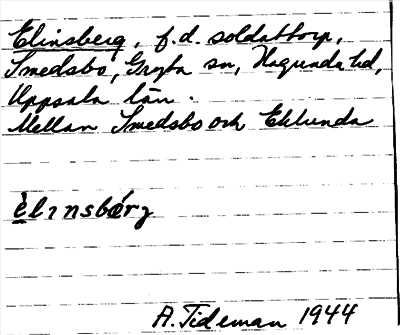 Elinsberg, f.d. soldattorp,
Smedsbo, Gryta sn, Hagunda hd,
Uppsala län.
Mellan Smedsbo och Eklunda
èlɪnsbærj
A. Tideman 1944